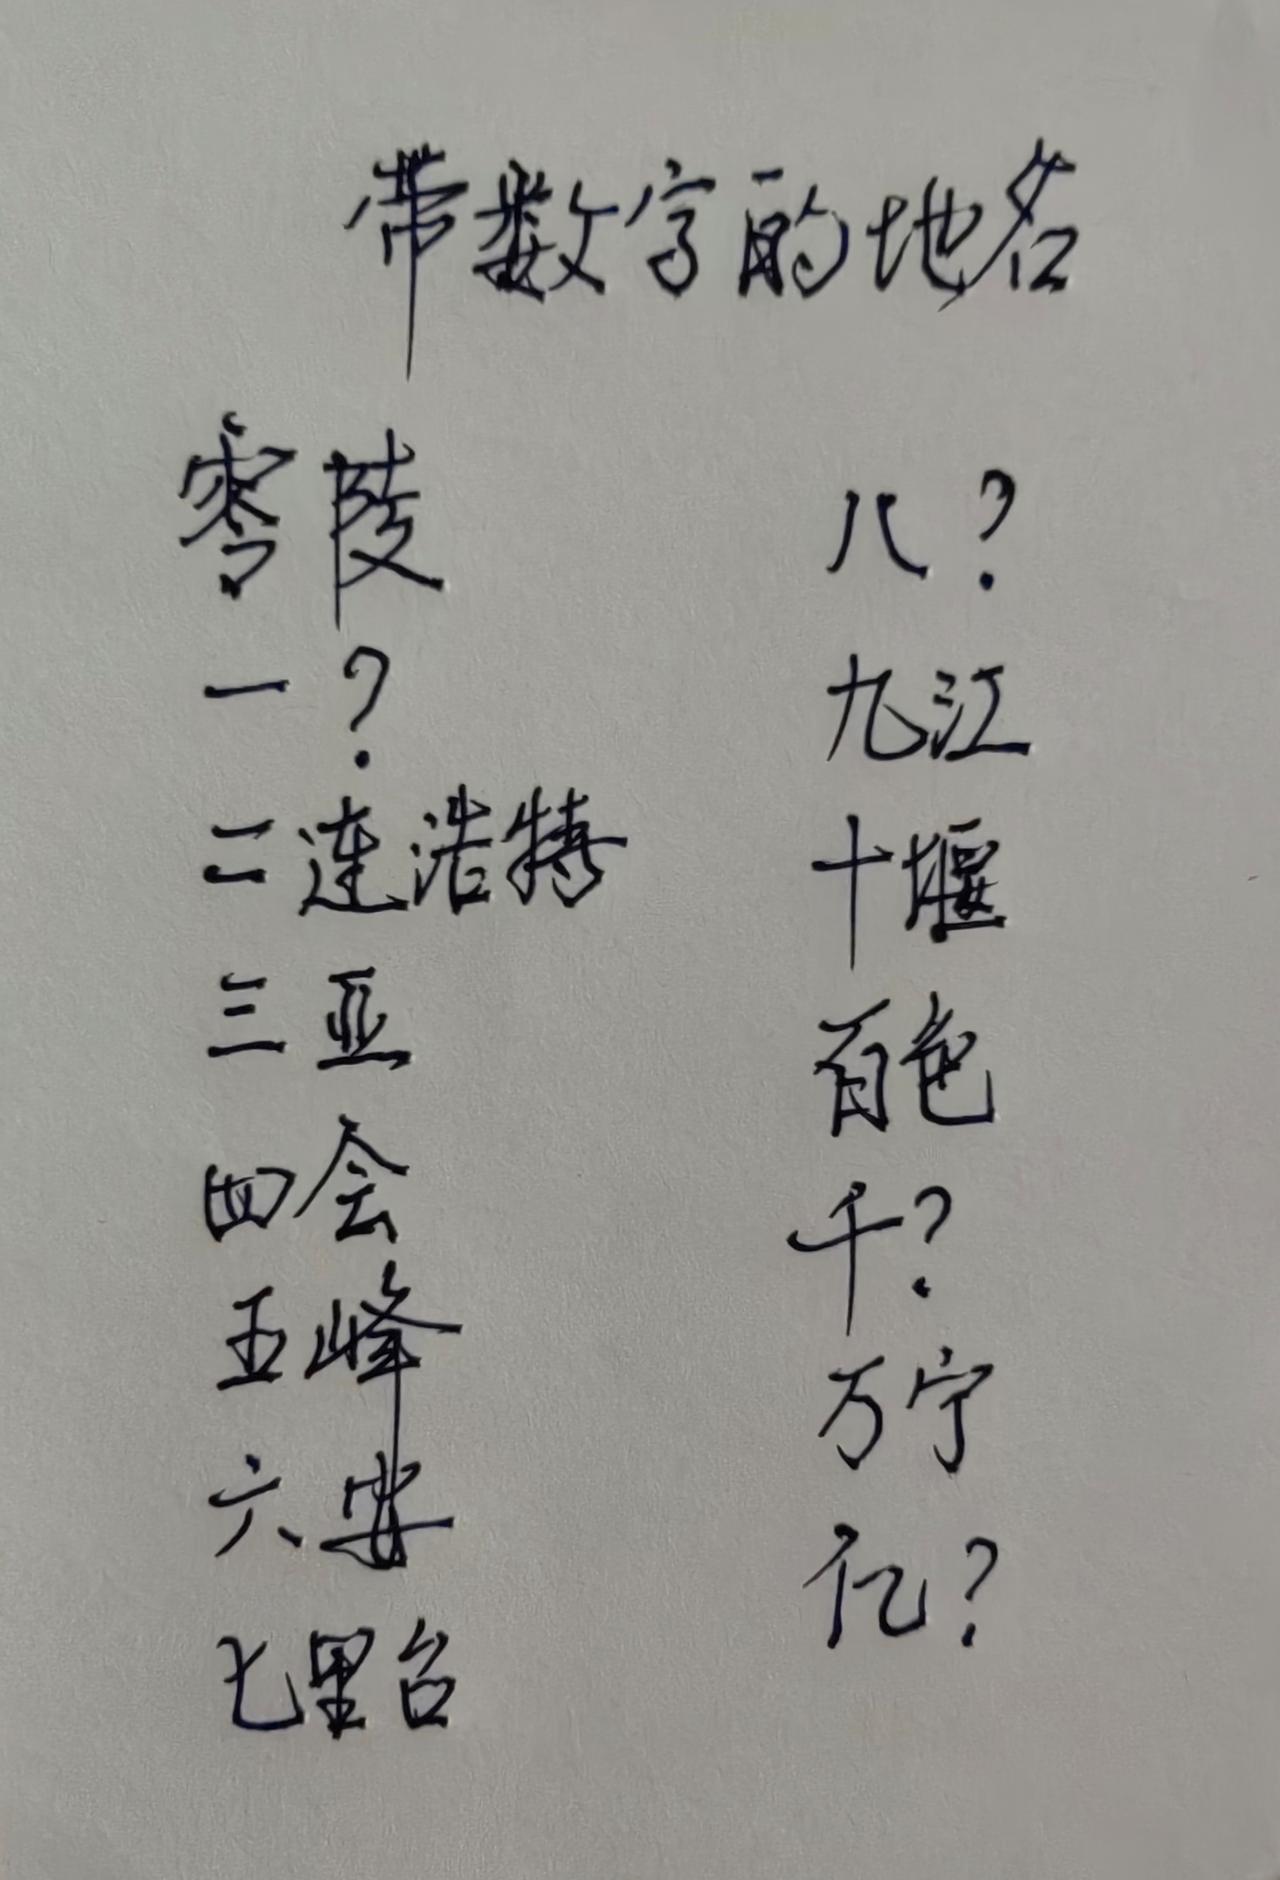 带数字的地名
零陵
一?
二连浩特
三亚
四会
五峰
六安
七里台
八?
九江
十堰
百色
千?
万宁
亿?